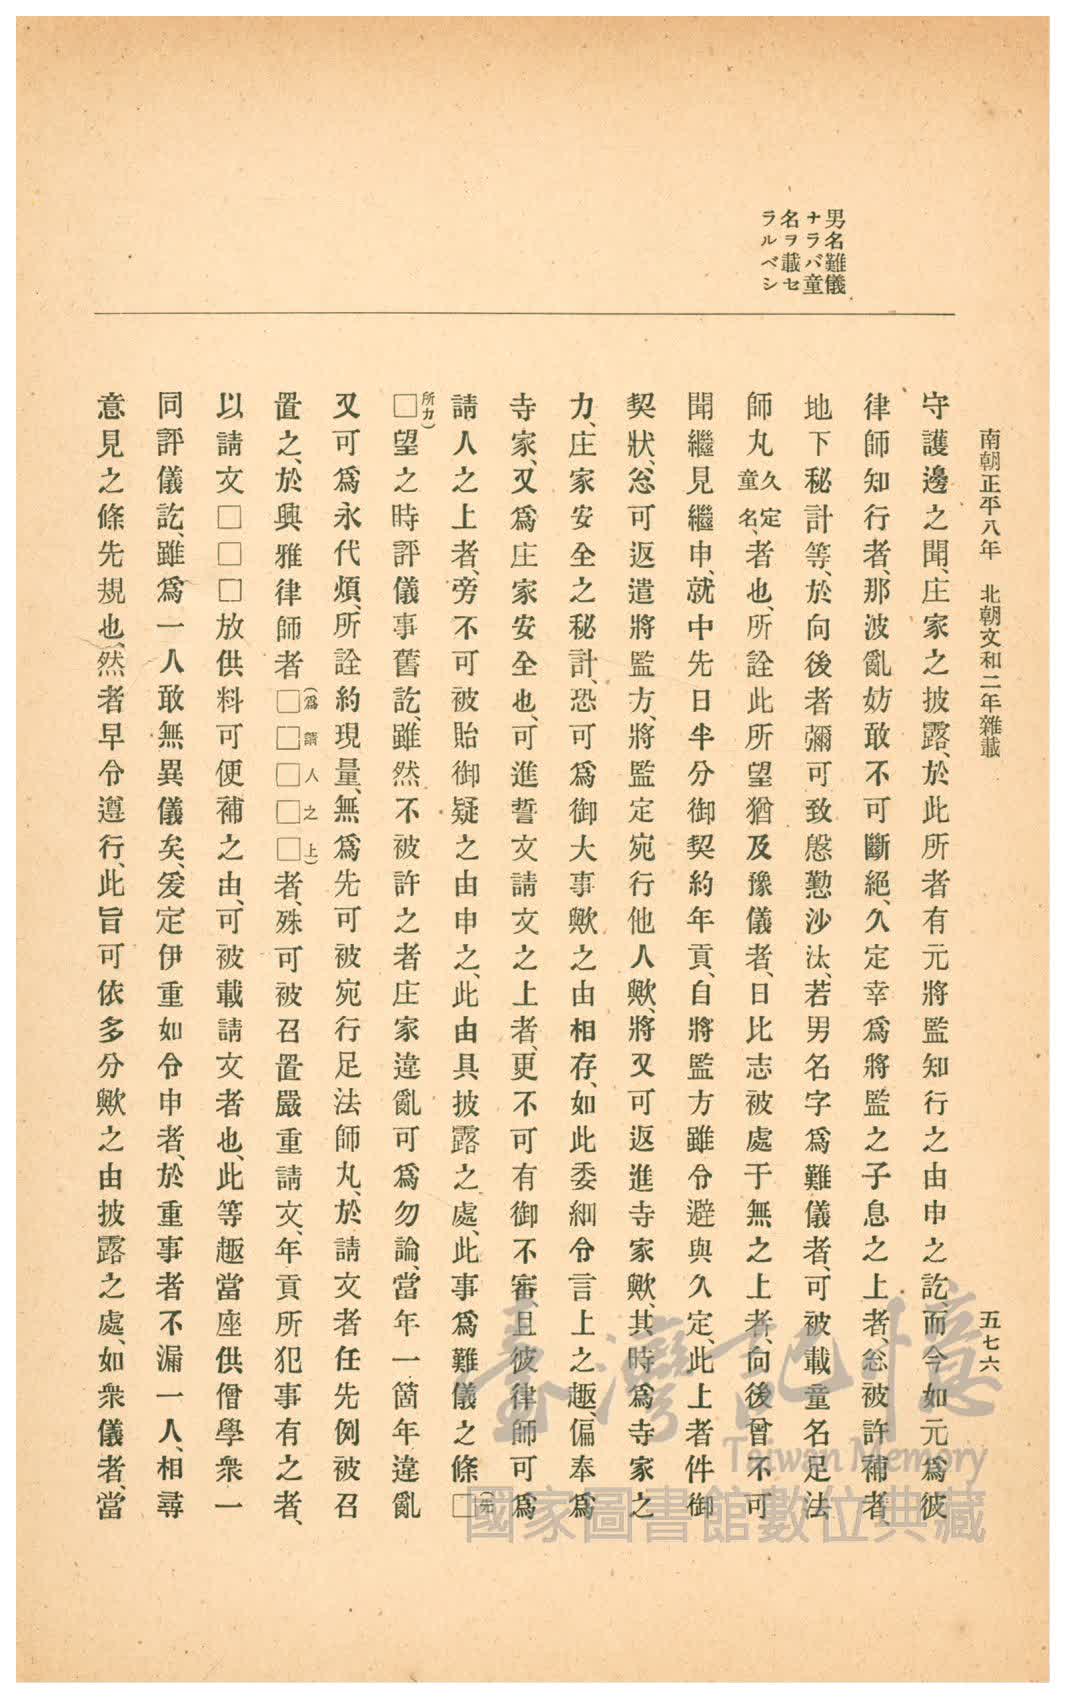 南朝正平八年　北朝文和二年雜載
五七六
男名難儀
ナラバ童
名ヲ載セ
ラルベシ
守護邊之聞、庄家之披露、於此所者有元將監知行之由申之訖、而今如元爲彼
律師知行者、那波亂妨敢不可斷絕、久定幸爲將監之子息之上者、忩被許補者、
地下秘計等、於向後者彌可致慇懃沙汰、若男名字爲難儀者、可被載童名足法
師丸久定童名、者也、所詮此所望猶及豫儀者、日比志被處于無之上者、向後曾不可
聞繼見繼申、就中先日半分御契約年貢、自將監方雖令避與久定、此上者件御
契狀、忩可返遣將監方、將監定宛行他人歟、將又可返進寺家歟、其時爲寺家之
力、庄家安全之秘計、恐可爲御大事歟之由相存、如此委細令言上之趣、偏奉爲
寺家、又爲庄家安全也、可進誓文請文之上者、更不可有御不審、且彼律師可爲
請人之上者、旁不可被貽御疑之由申之、此由具披露之處、此事爲難儀之條□(先
所力)□望之時評儀事舊訖、雖然不被許之者庄家違亂可爲勿論、當年一箇年違亂
又可爲永代煩、所詮約現量、無爲先可被宛行足法師丸、於請文者任先例被召
置之、於興雅律師者□□□□□(爲請人之上)者、殊可被召置嚴重請文、年貢所犯事有之者、
以請文□□□放供料可便補之由、可被載請文者也、此等趣當座供僧學衆一
同評儀訖、雖爲一人敢無異儀矣、爰定伊重如令申者、於重事者不漏一人、相尋
意見之條先規也、然者早令遵行、此旨可依多分歟之由披露之處、如衆儀者、當
臺灣記憶
Taiwan Memory
國家圖書館數位典藏